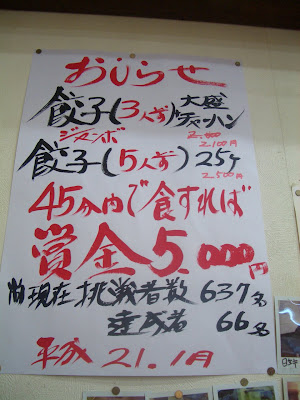 おしらせ
餃子(3人ず)大盛チャーハン
2,100円
ジャンボ
餃子(5人ず)25ケ
2,500円
45分内で食すれば
賞金5.000円
内現在挑戦者数 637名
達成者 66名
平成 21.1月